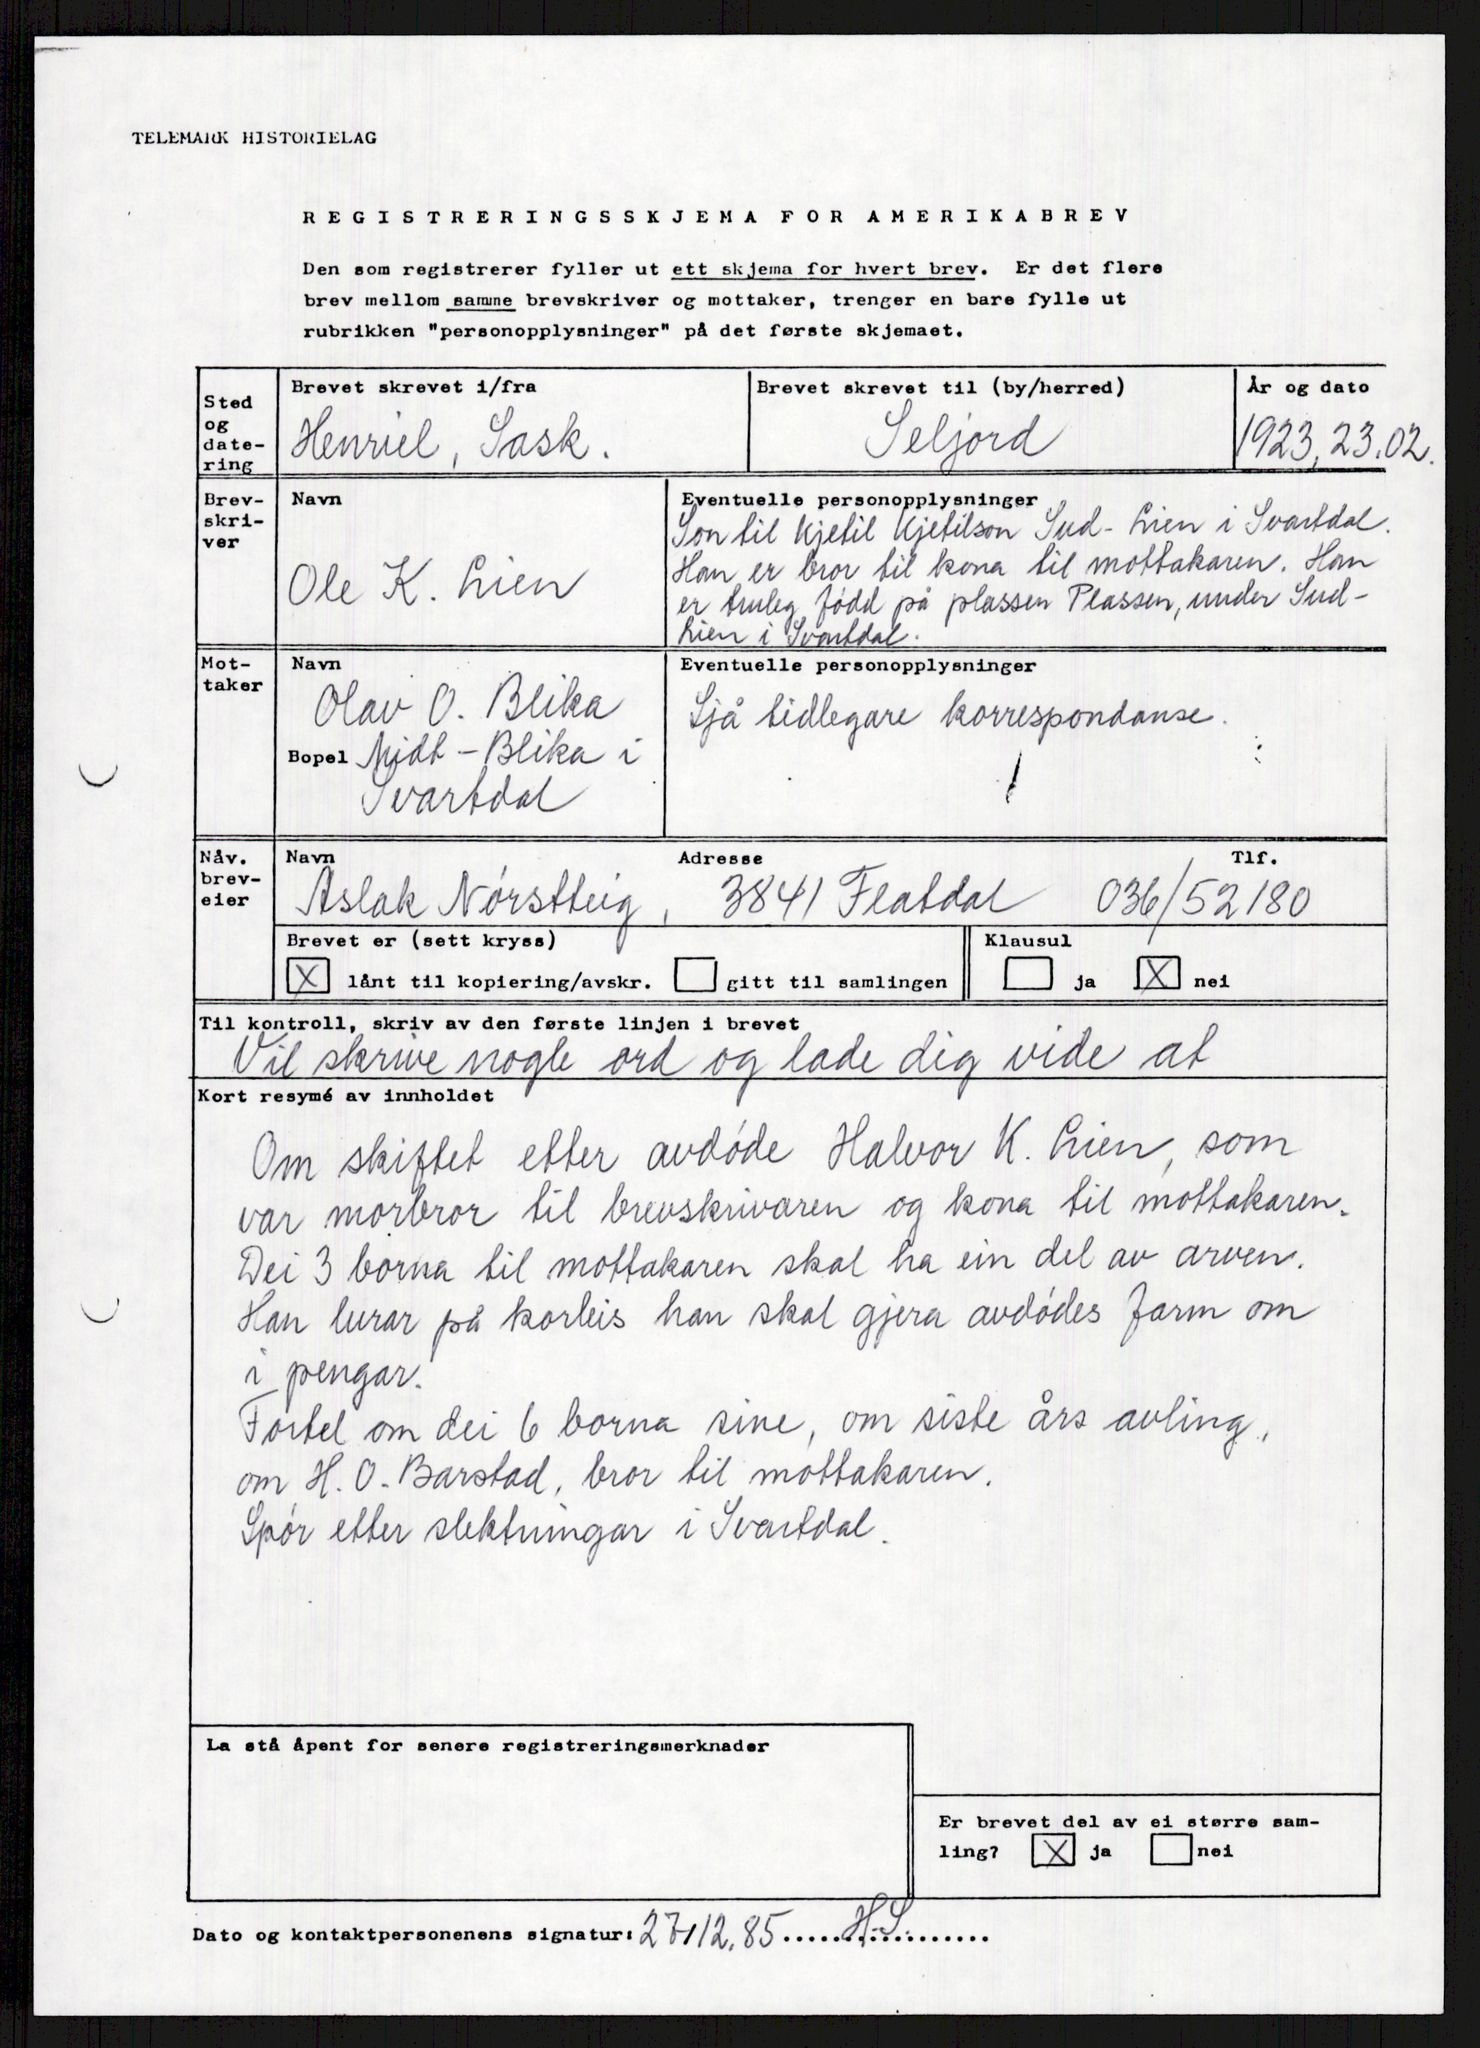 TELEMARK HISTORIELAG
REGISTRERINGSSKJEMA FOR AMERIKABREV
Den som registrerer fyller ut ett skjema for hvert brev. Er det flere
brev mellom samme brevskriver og mottaker, trenger en bare fylle ut
rubrikken "personopplysninger" på det første skjemaet.
Sted og date- ring
Brevet skrevet i/fra
Henriel, Sask.
Brevet skrevet til (by/herred)
Seljord
År og dato
1923, 23.02.
Brev- skri- ver
Navn
Ole K. Lien
Eventuelle personopplysninger
Son til Kjetil Kjetilson Sud-Lien i Svartdal.
Han er bror til kona til mottakaren. Han
er truleg fødd på plassen Plassen, under Sud-
Lien i Svartdal.
Mot- taker
Navn
Olav O. Blika
Bopel Midt-Blika i
Svartdal
Eventuelle personopplysninger
Sjå tidlegare korrespondanse.
Nåv. brev- eier
Navn Adresse Tlf.
Aslak Nørstteig, 3841 Flatdal 036/52180
Brevet er (sett kryss)
X lånt til kopiering/avskr. gitt til samlingen
Klausul
ja X nei
Til kontroll, skriv av den første linjen i brevet
Vil skrive nogle ord og lade dig vide at
Kort resymé av innholdet
Om skiftet etter avdøde Halvor K. Lien, som
var morbror til brevskrivaren og kona til mottakaren.
Dei 3 borna til mottakaren skal ha ein del av arven.
Han lurar på korleis han skal gjera avdødes farm om
i pengar.
Fortel om dei 6 borna sine, om siste års avling,
om H. O. Barstad, bror til mottakaren.
Spør etter slektningar i Svartdal.
La stå åpent for senere registreringsmerknader
Er brevet del av ei større sam-
ling? X ja nei
Dato og kontaktpersonenens signatur: 27/12.85 ..... H.S. .....